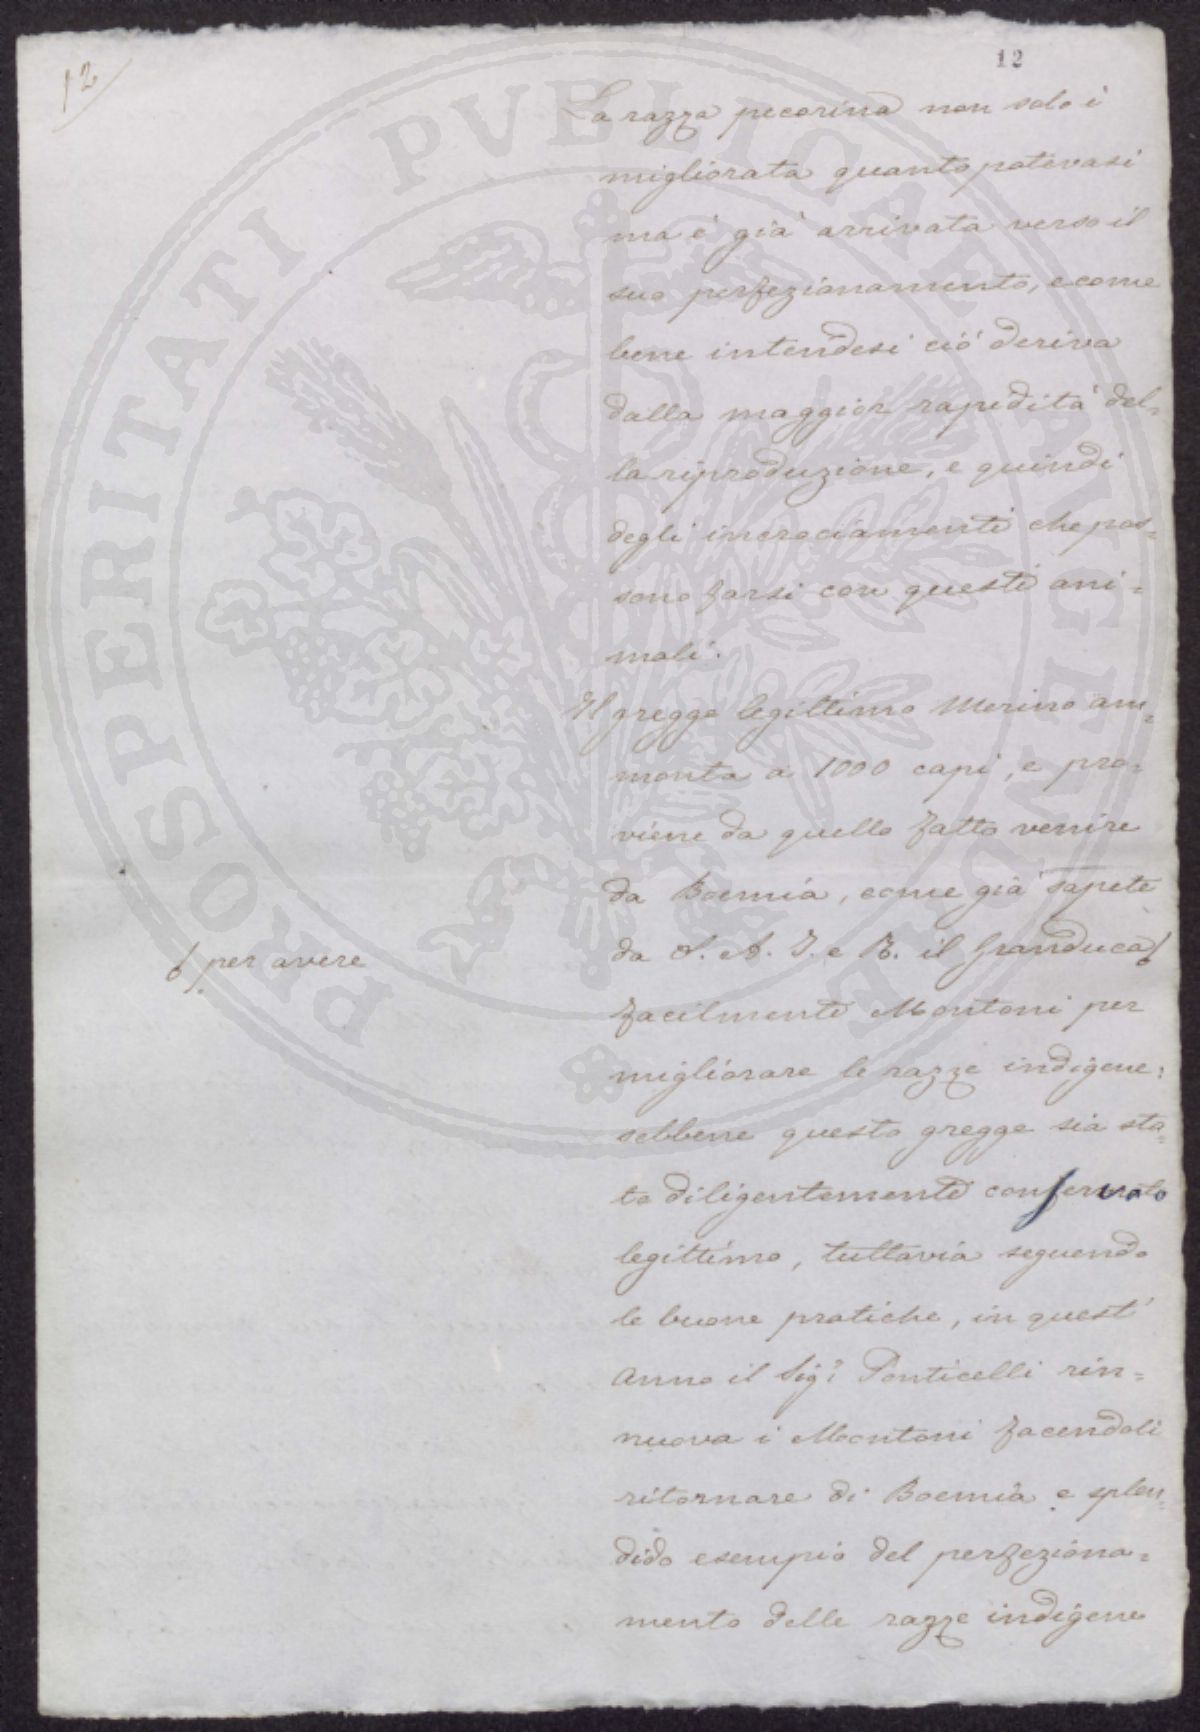 12
12
La razza pecorina non solo è
migliorata quanto potevasi
ma è già arrivata verso il
suo perfezionamento, e come
bene intendesi ciò deriva
dalla maggior rapedità del=
la riproduzione, e quindi
degli incrociamenti che pos=
sono farsi con questi ani=
mali.
Il gregge legittimo Merino am=
monta a 1000 capi, e pro=
viene da quello fatto venire
da Boemia, come già sapete
da S. A. I. e R. il Granduca
per avere
facilmente Montoni per
migliorare le razze indigene:
sebbene questo gregge sia sta=
to diligentemente conservato
legittimo, tuttavia seguendo
le buone pratiche, in quest'
anno il Sigr Ponticelli rin=
nuova i Montoni facendoli
ritornare di Boemia e splen=
dido esempio del perfeziona=
mento delle razze indigene
PROSPERITATI PVBLICAE AVGENDAE